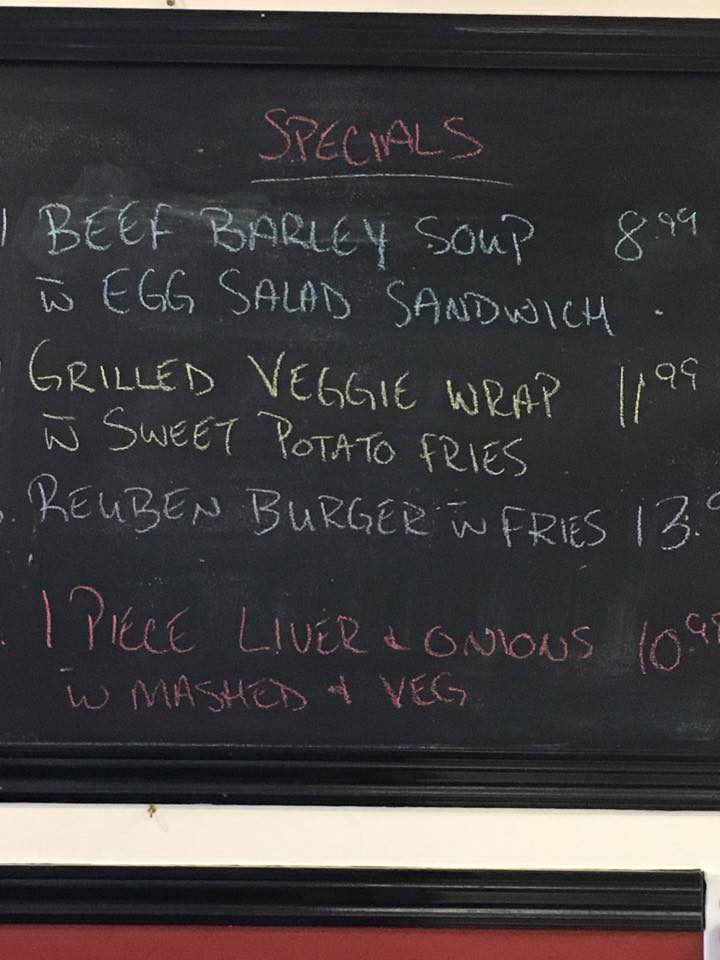 SPECIALS
BEEF BARLEY SOUP 8.99
w EGG SALAD SANDWICH
GRILLED VEGGIE WRAP 11.99
w SWEET POTATO FRIES
REUBEN BURGER w FRIES 13.
1 PIECE LIVER & ONIONS 10.98
w MASHED & VEG